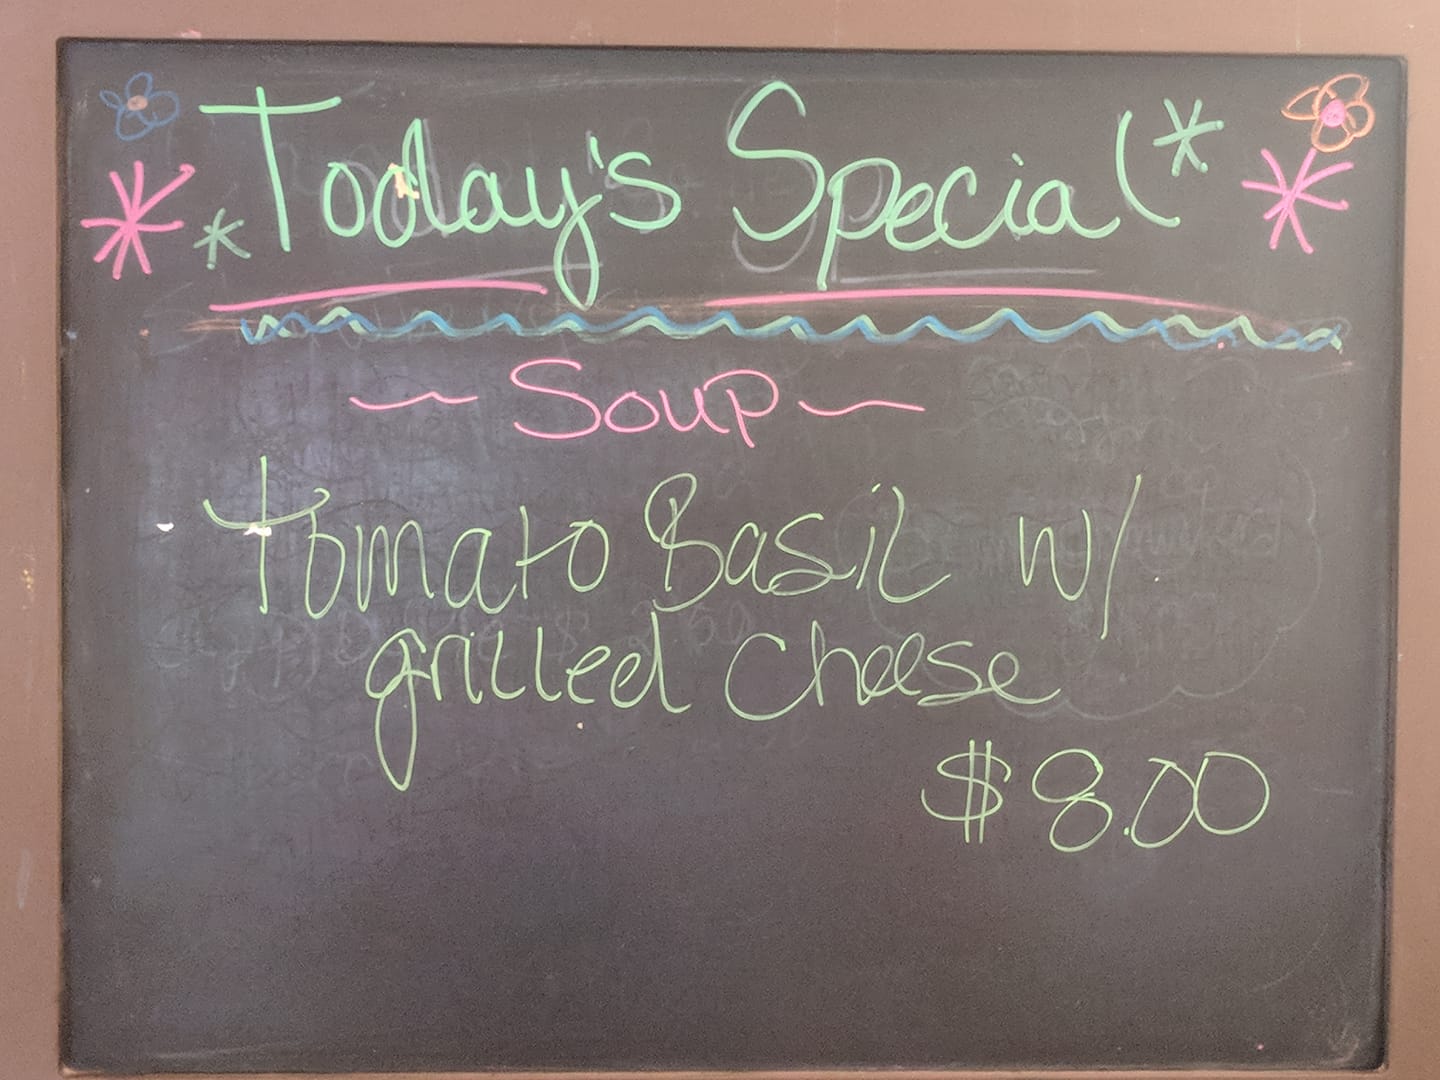 Today's Special
~ Soup ~
Tomato Basil w/
grilled cheese
$8.00